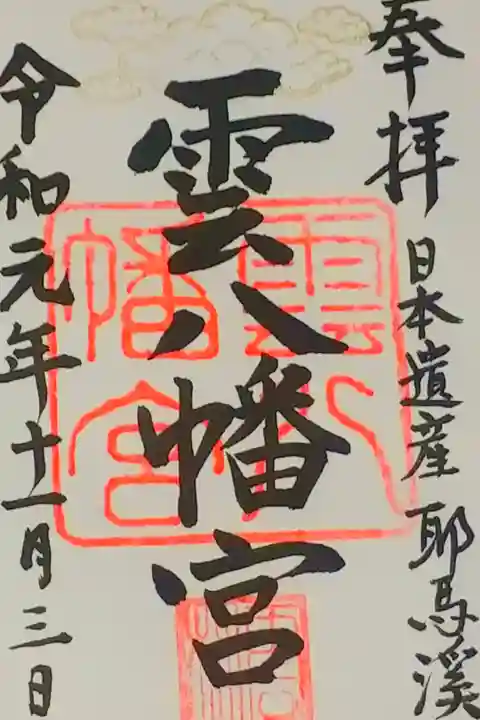 奉拝 日本遺産 耶馬溪
雲八幡宮
令和元年十一月三日
雲八幡宮